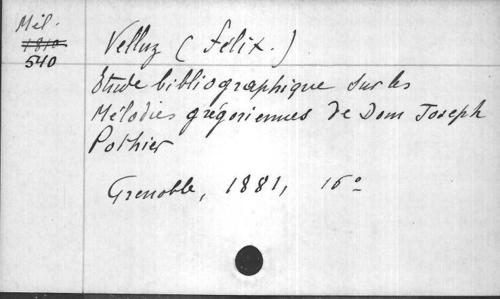 Mél.
1810
540
Velluz (Félix.)
Etude bibliographique sur les
Mélodies grégoriennes de Dom Joseph
Pothier
Grenoble, 1881, 16°